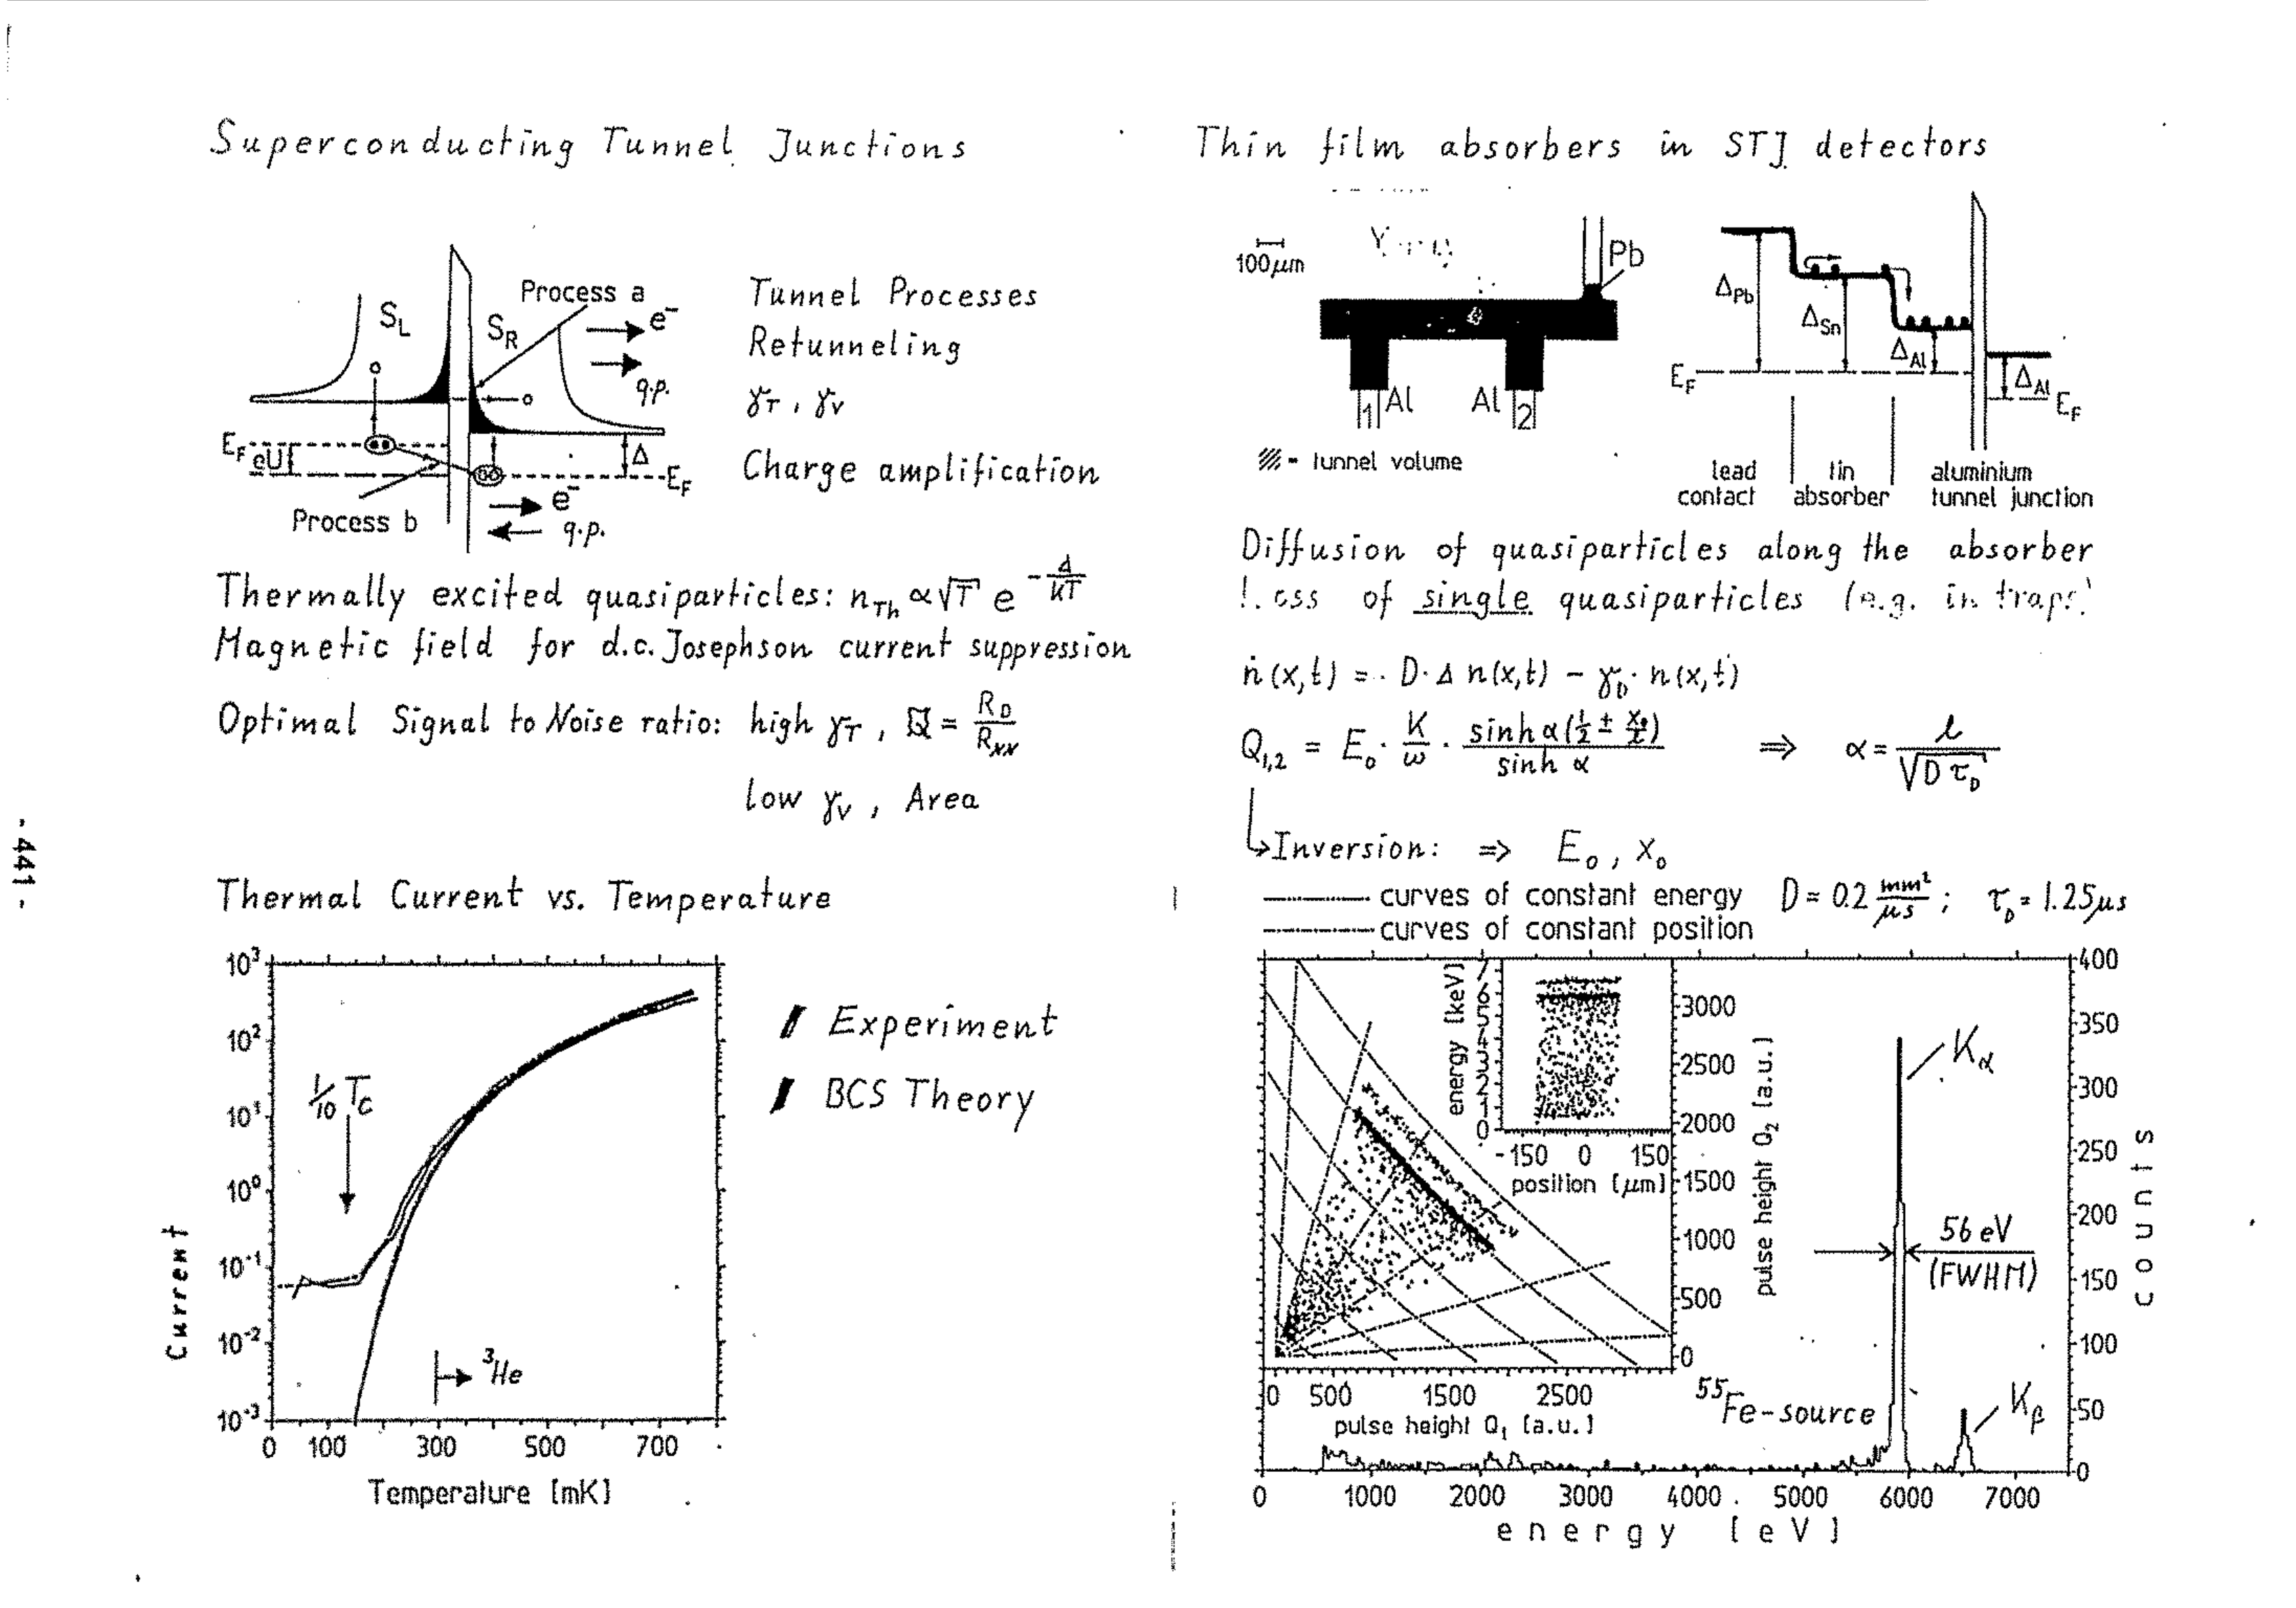 Superconducting Tunnel Junctions
S_L
S_R
Process a
e⁻
q.p.
E_F
eU
Δ
E_F
Process b
e⁻
q.p.
Tunnel Processes
Retunneling
γ_T , γ_V
Charge amplification
Thermally excited quasiparticles: n_Th ∝ √T e^(-Δ/kT)
Magnetic field for d.c. Josephson current suppression
Optimal Signal to Noise ratio: high γ_T , = R_D/
low γ_V , Area
Thermal Current vs. Temperature
10³
10²
10¹
10⁰
10⁻¹
10⁻²
10⁻³
1/10 T_C
³He
Current
0 100 300 500 700
Temperature [mK]
Experiment
BCS Theory
- 441 -
Thin film absorbers in STJ detectors
100 µm
Pb
1 Al Al 2
= tunnel volume
Δ_Pb
Δ_Sn
Δ_Al
E_F
Δ_Al
E_F
lead contact
tin absorber
aluminium tunnel junction
Diffusion of quasiparticles along the absorber
Loss of single quasiparticles (e.g. in traps)
ṅ(x,t) = D·Δ n(x,t) − γ_D· n(x,t)
Q_1,2 = E_0 · K/ω · sinh α(1/2 ± x_0/l) / sinh α ⇒ α = l/√(D τ_D)
Inversion: ⇒ E_0 , x_0
curves of constant energy D = 0.2 mm²/µs ; τ_D = 1.25 µs
curves of constant position
energy [keV]
7
6
5
4
3
2
1
0
-150 0 150
position [µm]
3000
2500
2000
1500
1000
500
0
pulse height Q_2 [a.u.]
0 500 1500 2500
pulse height Q_1 [a.u.]
400
350
300
250
200
150
100
50
0
counts
K_α
56 eV
(FWHM)
⁵⁵Fe-source
K_β
0 1000 2000 3000 4000 5000 6000 7000
energy [eV]